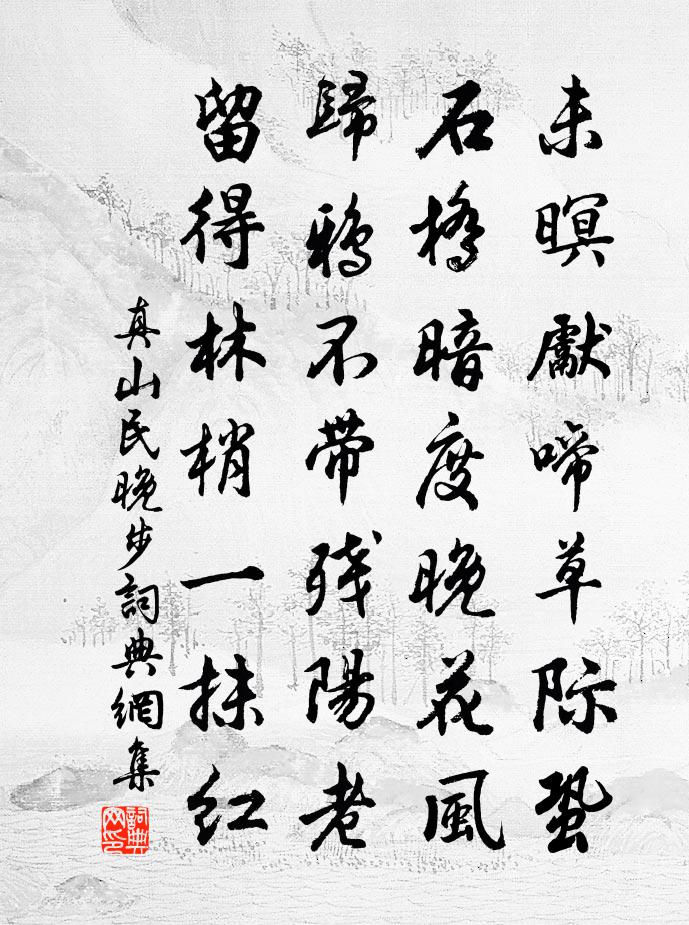 未暝獻啼草际蛩
石橋暗度晚花風
歸鴉不帶残陽老
留得林梢一抹红
真山民晚步詞典網集
詞典
网印